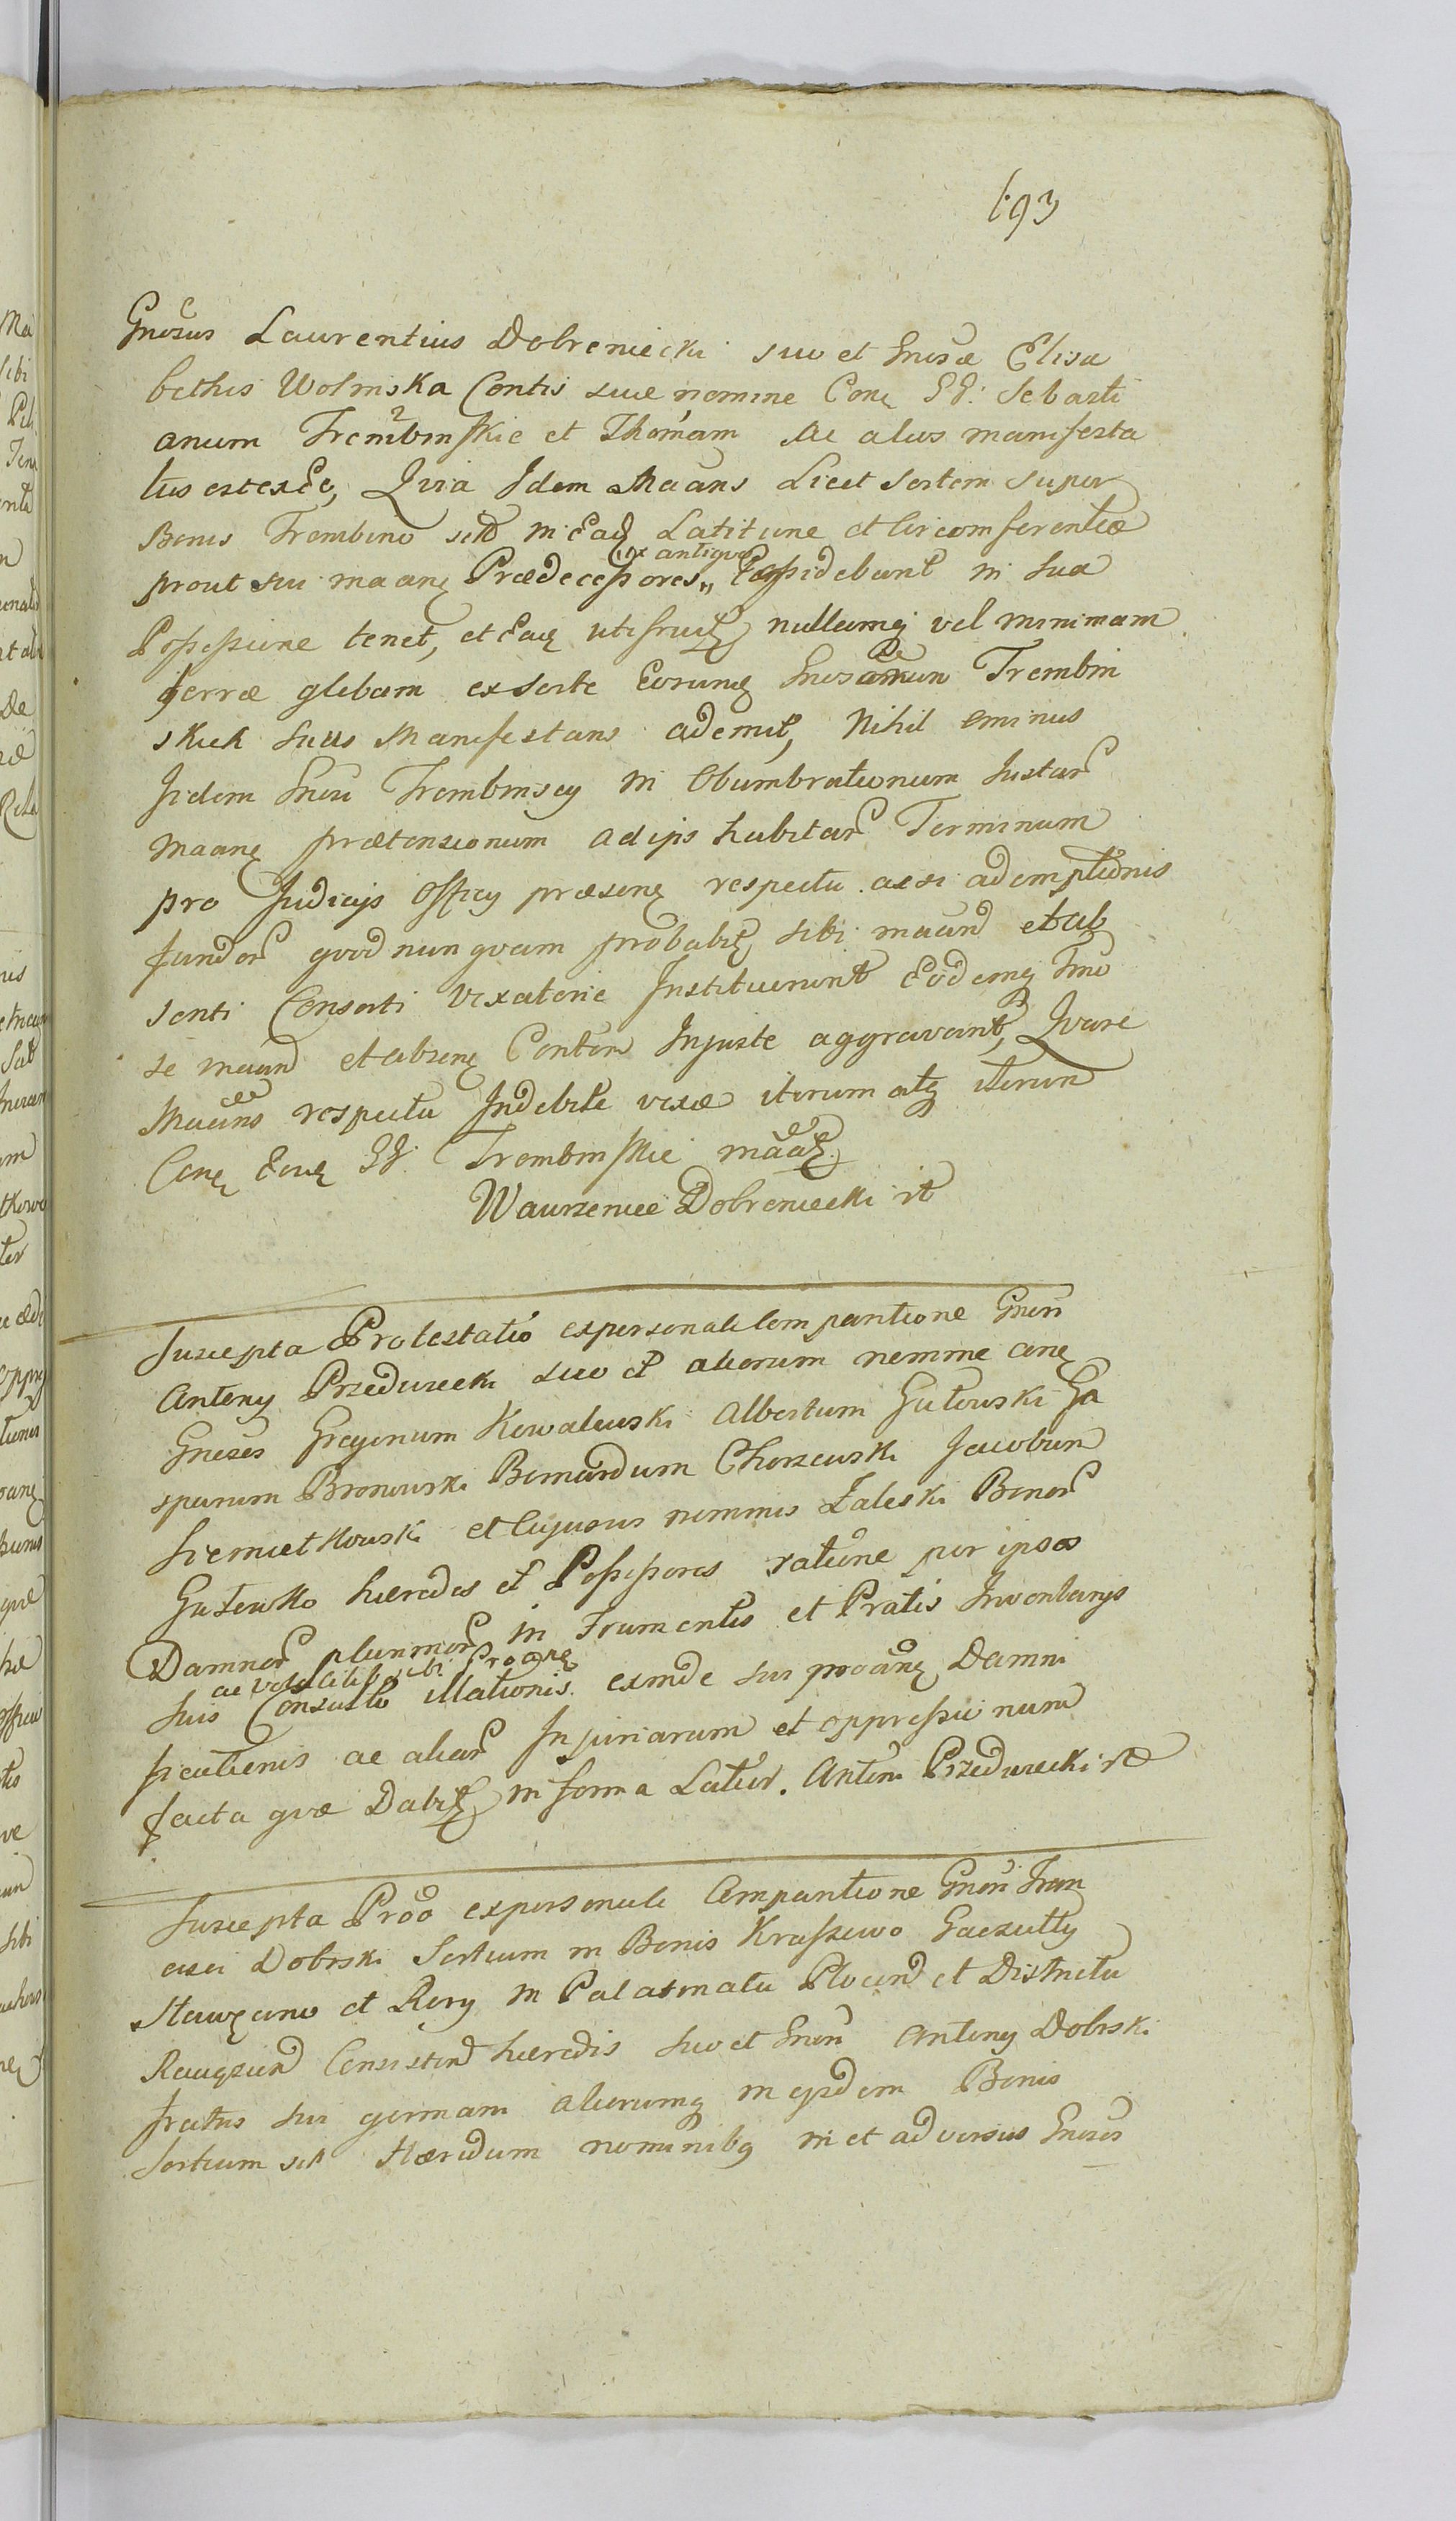 193
Gnosus Laurentius Dobreniecki suo et Gnosæ Elisa
bethis Wolinska Contis suæ nomine Conę GG: Sebasti
anum Trembinskie et Thomam Ac alios manifesta
tus est exEo, Qvia Idem Maans Licet Sortem super
Bonis Trembino sitt in Eaq Latitune et Circomferentiæ
prout sui maanę Prædecessores,, ex antiquo Possidebant in sua
Possessione tenet, et Eaq utifruitę nullamq vel minimam
terræ glebam ex Sorte Eorunę Gnosorum Trembin
skich suus Manifestans ademit, Nihil eminus
Iidem Gnosi Trembinscy in Obumbrationum Justar
maanę prætensionum ad ijs habitar Terminum
pro Judicijs Officij præsenę respectu acsi ademptionis
fundor qvod nunqvam probabitę sibi maand et ab
senti Consorti vexatorie Instituerunt Eodemq Tmo
se maand et absenę Contem Injuste aggravant, Qvare
Maans respectu Indebite vexæ iterum atq iterum
Conę Eosę GG. Trembinskie maatę.
Wawrzeniec Dobreniecki rt
Suscepta Protestatio expersonali Compantione Gnosi
Antony Przedwiecki suo et aliorum nomine conę
Gnosos Gregorium Kowalewski Albertum Gutowski Ga
sparum Bronowski Bernardum Chorzewski Jacobum
Siemietkowski et Cujusvis nominis Zaleski Bonor
Gutowko hæredes et Possessores ratione per ipsos
Damnor plurimor in Frumentis et Pratis Inventarijs
ac volatilib sibi Proanę
Suis Consulto illationis exinde sui proanę Damni
ficationis ac aliar Injuriarum et oppressionum
facta qvæ Dabitę in forma Latior. Antoni Przedwiecki rt
Suscepta Proo expersonali Compantione Gnosi Fran
cisci Dobrski Sortium in Bonis Kraszewo Gaczulty
et Rory in Palatinatu Plocend et Districtu
Raciązend Consistend hæredis suo et Gnosi Antony Dobrski
fratris sui germani aliorumq in ejsdem Bonis
Sortium sitt Hæredum nominibq in et adversus Gnosos